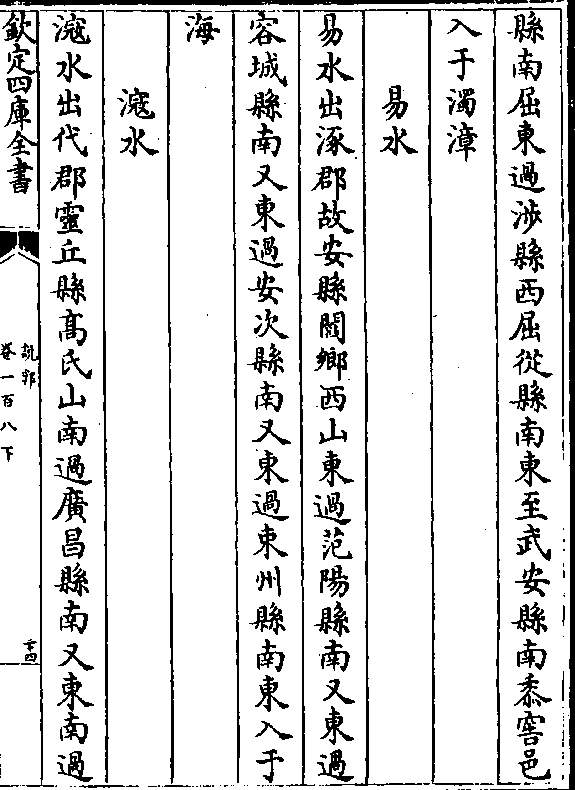 縣南屈東過涉縣西屈從縣南東至武安縣南黍窖邑
入于濁漳
易水
易水出涿郡故安縣閻鄉西山東過范陽縣南又東過
容城縣南又東過安次縣南又東過東州縣南東入于
海
滱水
滱水出代郡靈丘縣高氏山南過廣昌縣南又東南過
欽定四庫全書
說郛
卷一百八下
二十四